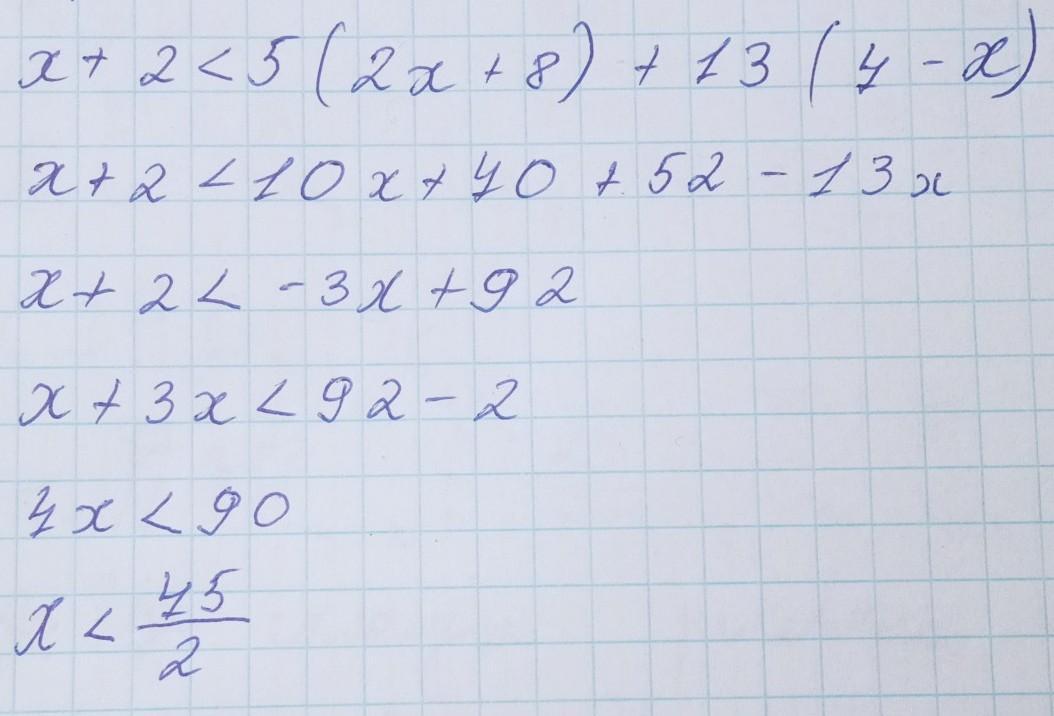 x + 2 < 5 (2x + 8) + 13 (4 - x)
x + 2 < 10x + 40 + 52 - 13x
x + 2 < -3x + 92
x + 3x < 92 - 2
4x < 90
x < 45/2